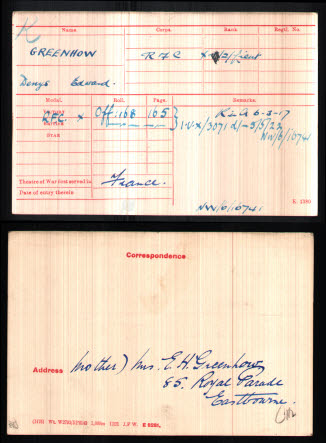 K
Name. Corps. Rank. Regtl. No.
GREENHOW R F C X 2/Lieut
Denys Edward.
Medal. Roll. Page. Remarks.
VICTORY R.F.C. X Off. 168 105 K in A 6-3-17
1.V.X/3071 d/-5/5/22
STAR NW/6/10741
Theatre of War first served in France.
Date of entry therein
NW/6/10741
K. 1380
Correspondence
Address Mother) Mrs. E. H. Greenhow
85. Royal Parade
Eastbourne.
E 5591.